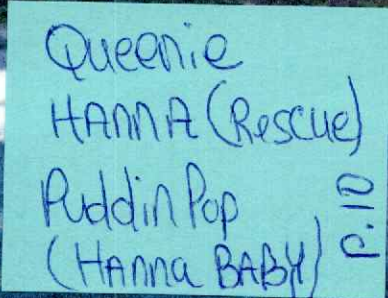 Queenie
HANNA (Rescue)
Puddin Pop
(Hanna BABY)
P.10